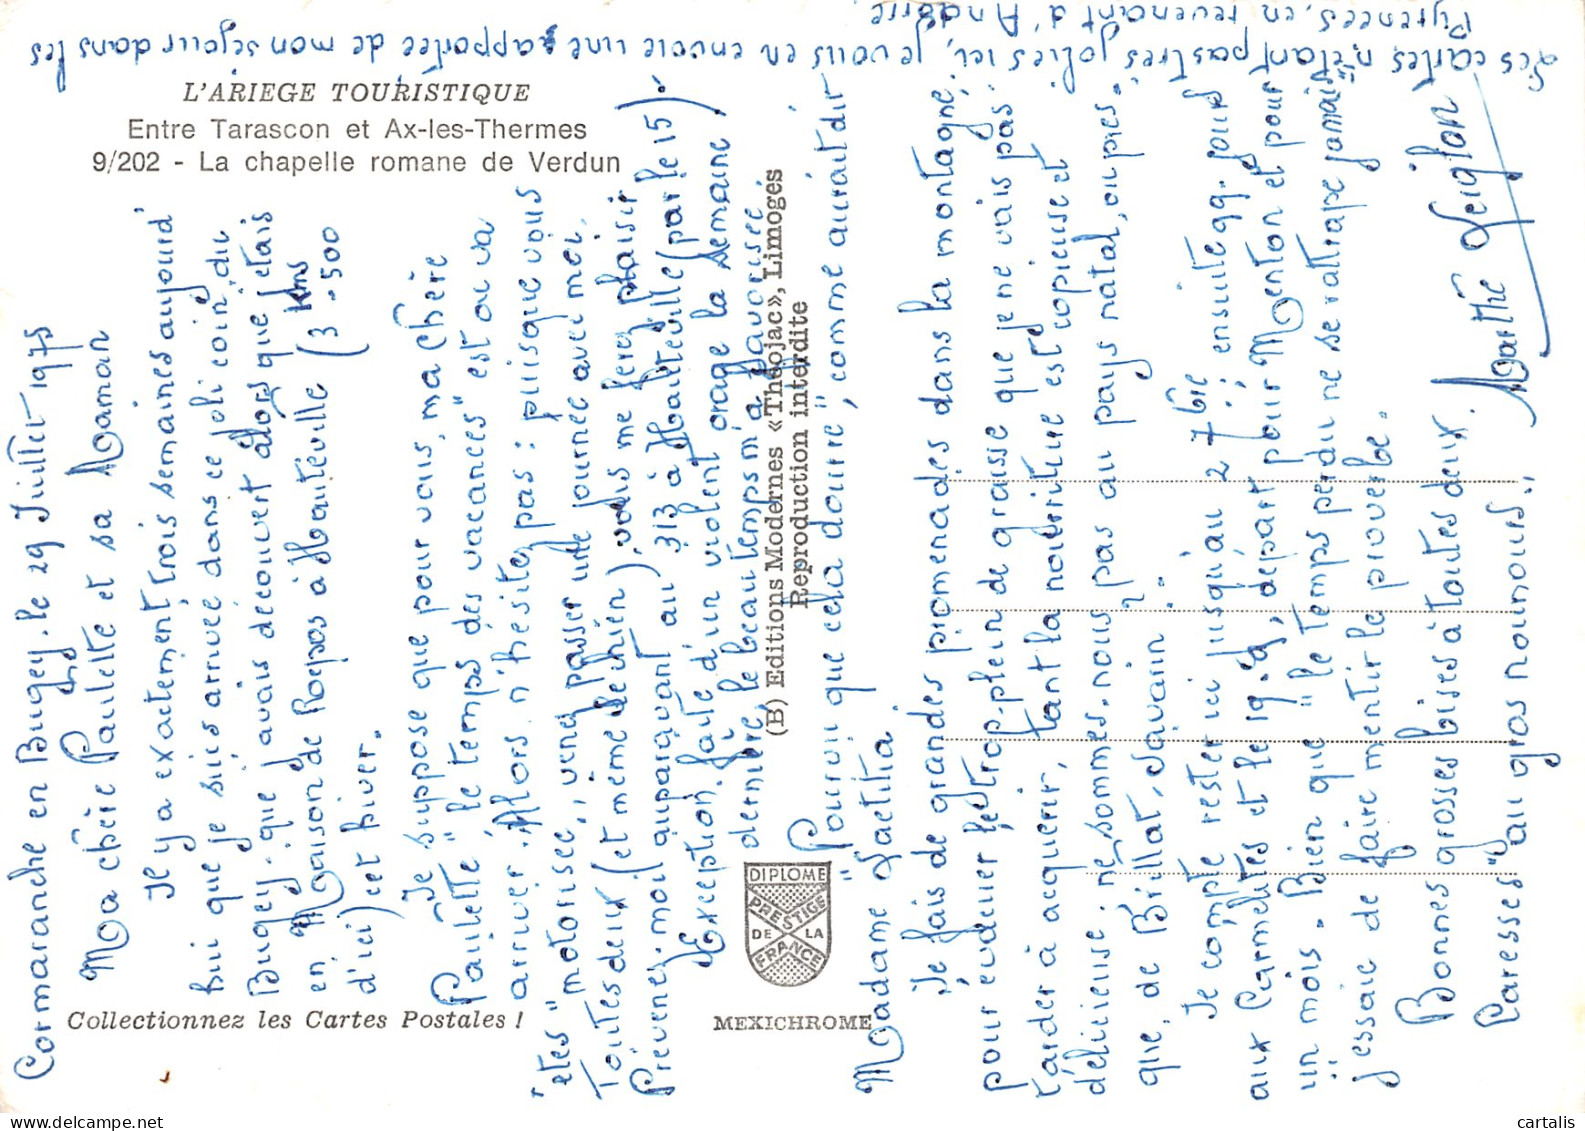 L'ARIEGE TOURISTIQUE
Entre Tarascon et Ax-les-Thermes
9/202 - La chapelle romane de Verdun
Cormaranche en Bugey. le 29 Juillet 1975
Ma chère Paulette et sa Maman
Il y a exactement trois semaines aujourd'
hui que je suis arrivée dans ce joli coin du
Bugey. que j'avais découvert alors que j'étais
en Maison de Repos à Hauteville (3 kms 500
d'ici) cet hiver.
Je suppose que pour vous, ma chère
Paulette "le temps des vacances" est ou va
arriver. Alors n'hésitez pas : puisque vous
êtes "motorisée", venez passer une journée avec moi.
Toutes deux (et même le chien), vous me ferez plaisir
Prévenez-moi auparavant au 313 à Hauteville (par le 15).
Exception faite d'un violent orage la semaine
dernière, le beau temps m'a favorisée.
"Pourvu que cela doure", comme aurait dit
Madame Laetitia.
Je fais de grandes promenades dans la montagne
pour évacuer le trop-plein de graisse que je ne vais pas
tarder à acquérir, tant la nourriture est copieuse et
délicieuse. ne sommes-nous pas au pays natal, ou presque, de Brillat, Savarin ?
Je compte rester ici jusqu'au 2 7bre ; ensuite qq. jours
aux Carmélites et le 19. 9, départ pour Menton et pour
un mois. Bien que "le temps perdu ne se rattrape jamais"
j'essaie de faire mentir le proverbe.
Bonnes grosses bises à toutes deux.
Caresses "au gros nounours"
Marthe
Les cartes n'étant pas très jolies ici, je vous en envoie une rapportée de mon séjour dans les
Pyrénées, en revenant d'Andorre.
(B) Editions Modernes «Théojac», Limoges
Reproduction interdite
DIPLOME
PRESTIGE
DE LA
FRANCE
Collectionnez les Cartes Postales !
MEXICHROME
cartalis